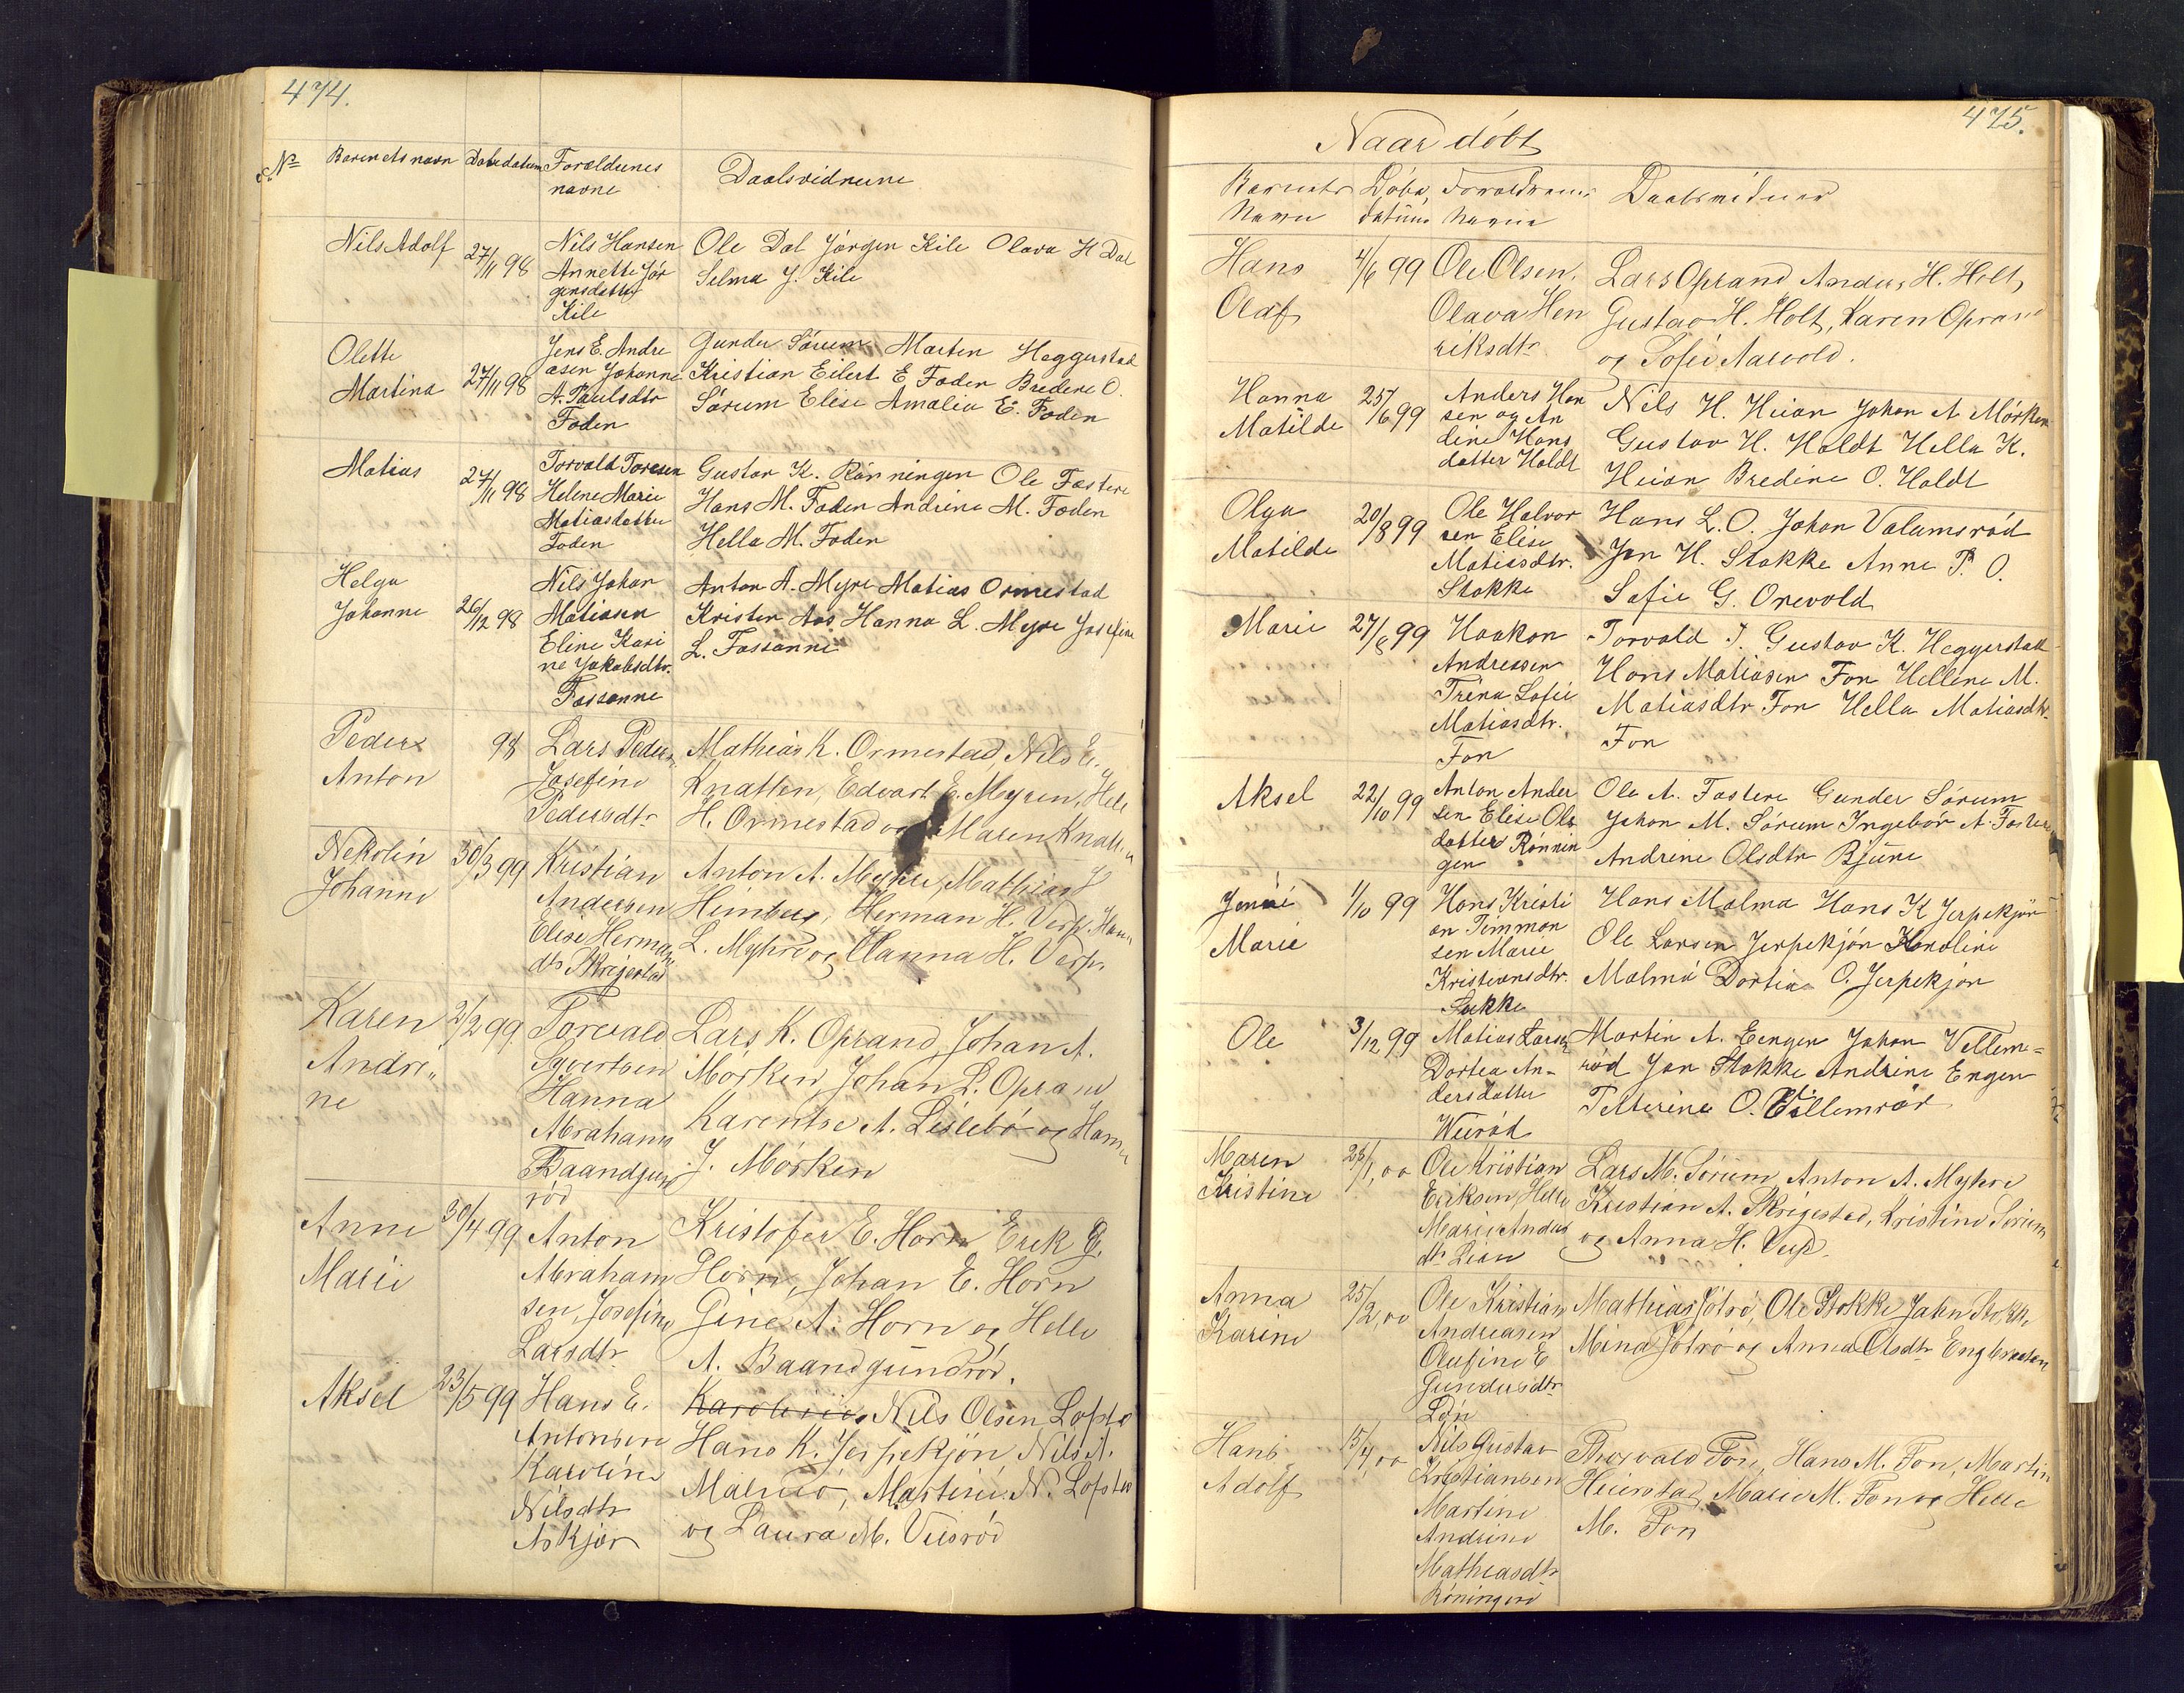 474.
No Barnets navn Dabsdatum Foraldrenes
navne
Daabsvidnerne
Nils Adolf 27/11 98 Nils Hansen
Annette Jör
gensdatter
Kile
Ole Dal Jörgen Kile Olava H Dal
Selma J. Kile
Olette
Martina
27/11 98
Jens E. Andre
asen Johanne
A. Paulsdtr
Foden
Gunder Sörum Marten Heggerstad
Kristian Eilert E Foden Bredene O.
Sörum Elise Amalia E. Foden
Matias 27/11 98 Torvald Toresen
Helene Marie
Matiasdatter
Foden
Gustav K. Rönningen Ole Fostere
Hans M. Foden Andrine M. Foden
Hella M. Foden
Helga
Johanne
26/12 98
Nils Johan
Matiasen
Eline Kari
ne Jakobsdtr.
Fossanne
Anton A. Myre Matias Ormestad
Kristen Aas Hanna L. Myre Josefine
L. Fossanne
Peder
Anton
98
Lars Peders
Josefine
Pedersdtr
Mathias K. Ormestad, Nils E.
Knatten, Edvart E. Myren, Hele
H. Ormestad og Maren Knatt
Nekolin
Johanne
30/3 99
Kristian
Andersen
Elise Herman
dtr Skrejestad
Anton A. Myhre, Mathias J
Himberg, Herman H. Verp. Han
L. Myhre og Hanna H. Verp.
Karen
Andri„
ne
2/2 99
Torvald
Syvertsen
Hanna
Abrahams
Baandgun
röd
Lars K. Oprand, Johan A.
Mörken, Johan L. Opran
Karentse A. Lislebö og Hann
J. Mörken
Anne
Marie
30/4 99
Anton
Abraham
sen Josefine
Larsdtr
Kristofer E. Horn Erik E.
Horn, Johan E. Horn
Gine A. Horn og Helle
A. Baandgundröd.
Aksel 23/5 99 Hans E.
Antonsen
Karoline
Nilsdtr
Askjær
Nils Olsen Lofste
Hans K. Jerpekjön, Nils A.
Malmö, Martine N. Lofste
og Laura M. Viesröd
475.
Naar döbt
Barnets
Navn
Döbs,
datum
Forældrenes
Navne
Daabsvidner
Hans
Olaf
4/6 99
Ole Olsen.
Olava Hen
riksdtr
Lars Oprand Anders H. Holt,
Gustav H. Holt, Karen Opran
og Sofie Aasvold.
Hanna
Matilde
25/6 99
Anders Han
sen og An
dine Hans
datter Holdt
Nils H. Heian Johan A Mörken
Gustav H. Holdt Hella K.
Heian Bredine O. Holdt
Olga
Matilde
20/8 99
Ole Halvor
sen Elise
Matisdtr.
Stokke
Hans L. O. Johan Valamsröd
Jon H. Stokke Anne P. O.
Sofie G. Orevold
Marie 27/8 99 Haakon
Andresen
Trena Sofie
Matiasdtr.
Fon
Torvald T. Gustav K. Heggerstad
Hans Matiasen Fon Helline M.
Matiasdtr Fon Hella Matiasdtr.
Fon
Aksel 22/10 99 Anton Ander
sen Elise Ols
datter Rönnin
gen
Ole A. Fostere Gunder Sörum
Johan M. Sörum Ingebör A. Fostere
Andrine Olsdtr Bjune
Jenni
Marie
1/10 99
Hans Kristi
an Timman
sen Marie
Kristiansdtr.
Lukke
Hans Malma Hans K Jerpekjön
Ole Larsen Jerpekjön Karoline
Malmö Dortia O. Jerpekjön
Ole 3/12 99 Matias Larsen
Dortea An-
dersdatter
Weiröd
Martin A. Eengen Johan Vellem-
röd Jon Stokke Andrine Engen
Petterine O. Villemröd
Maren
Kristine
26/1,00
Ole Kristian
Eriksen, Helle
Marie Anders
dtr Lian
Lars M. Sörum Anton A. Myhre
Kristian A. Skrigestad, Kristine Sörum
og Anna H. Verp.
Anna
Karine
25/2,00
Ole Kristian
Andreasen
Olufine E
Gundersdtr
Lön
Mathias Götrö, Ole Stokke John Stokke
Mina Götrö og Anna Olsdtr Engbraaten
Hans
Adolf
15/4,00
Nils Gustav
Kristiansen
Martine
Andrine
Mathiasdtr
Röningen
Thorvald Fon, Hans M. Fon, Martin
Heierstad, Marie M. Fon og Helle
M. Fon